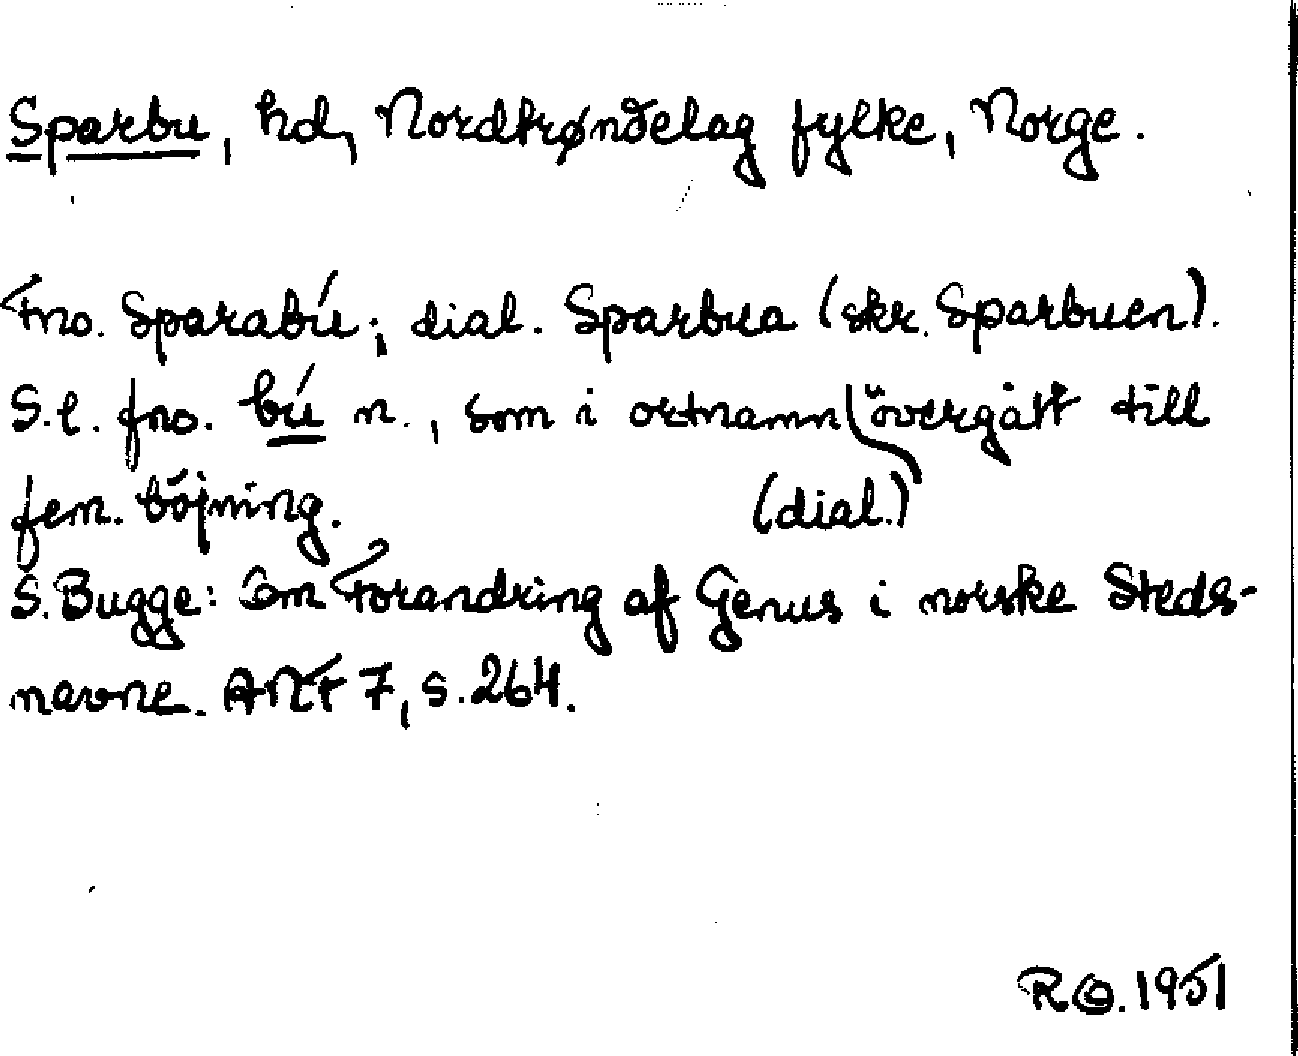 Sparbu, hd, Nordtrøndelag fylke, Norge.
Fno. Sparabú; dial. Sparbua (skr. Sparbuen).
S.l. fno. bú n., som i ortnamn (dial.) övergått till
fem. böjning.
S. Bugge: Om Forandring af Genus i norske Steds-
navne. ANF 7, s. 264.
1951